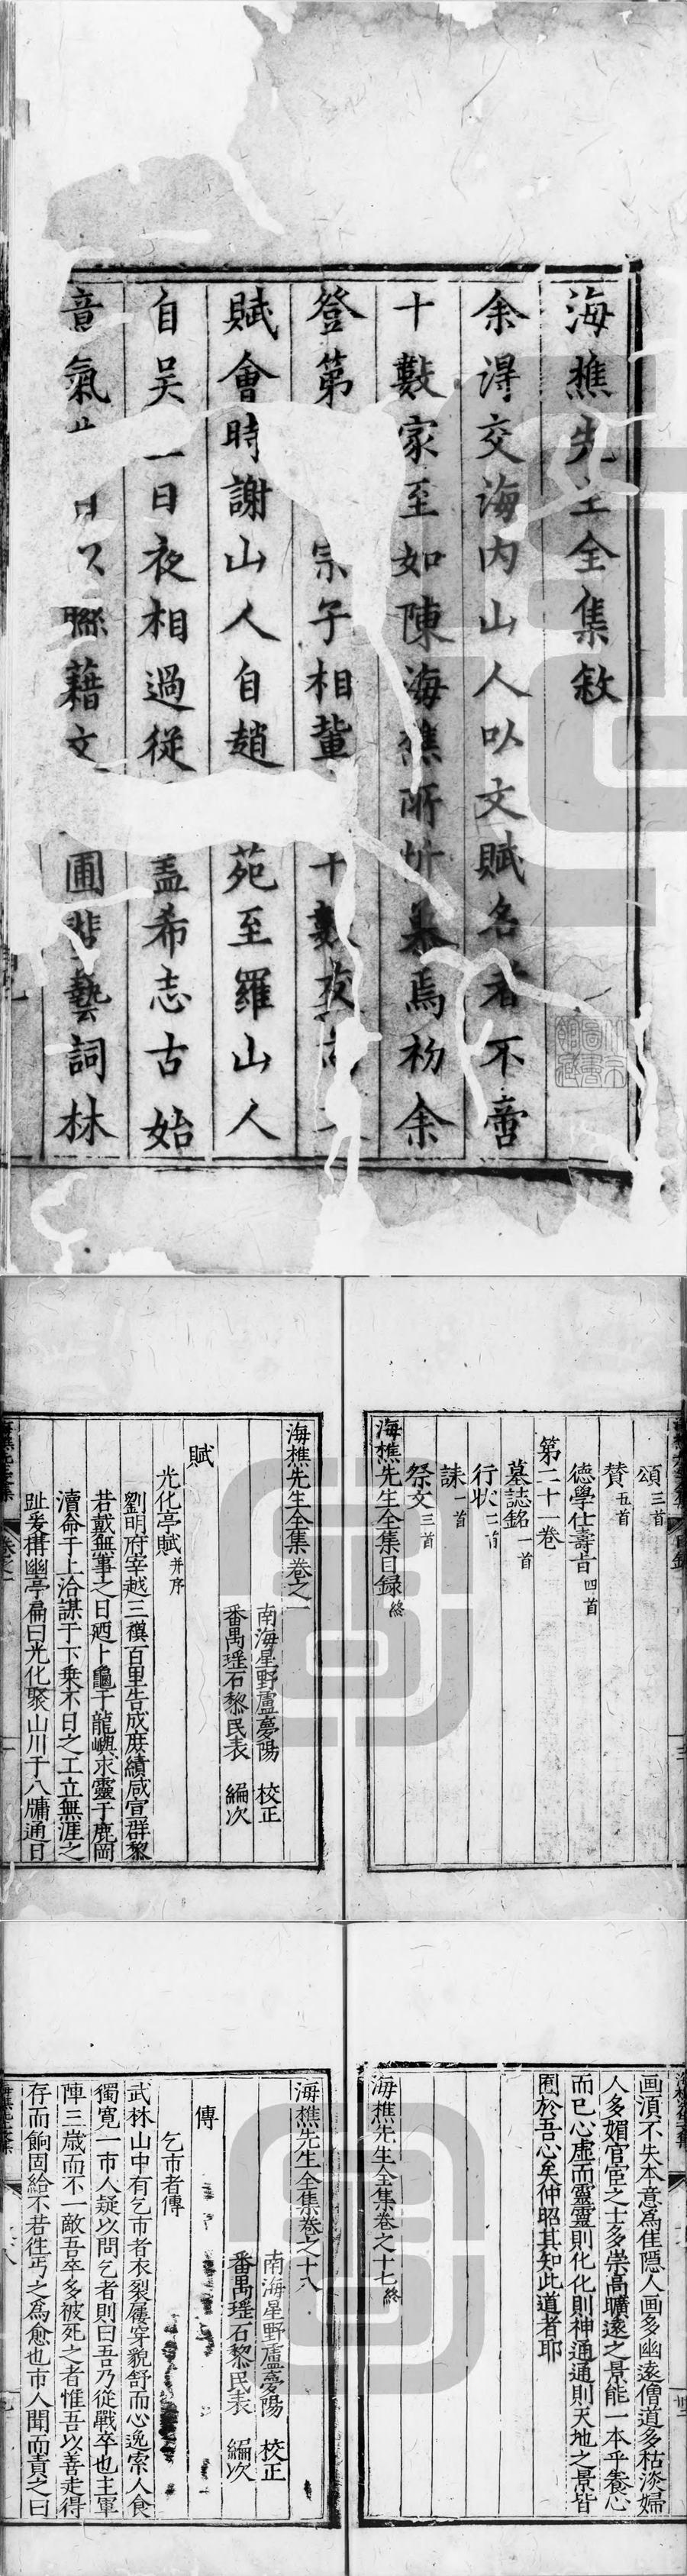 海樵先生全集敘
余得交海內山人以文賦名者不啻
十數家至如陳海樵所忻慕焉初余
登第宗子相輩十數
賦會時謝山人自趙苑至羅山人
自吳一日夜相過從蓋希志古始
意氣聯藉文圃藝詞林
頌三首
賛五首
德學仕壽旹四首
第二十一卷
墓誌銘一首
行状二首
誄一首
祭文三首
海樵先生全集目録終
海樵先生全集卷之一
南海星野盧夢陽 校正
番禺瑶石黎民表 編次
賦
光化亭賦并序
劉明府宰越三禩百里告成庶績咸宣群黎
若戴無事之日廼卜龜于龍嶼求靈于鹿岡
瀆侖于上洽謀于下乗不日之工立無涯之
趾爰構幽亭扁曰光化聚山川于八牗通日
画湏不失本意爲佳隠人画多幽遠僧道多枯淡婦
人多媚官宦之士多崇高曠遠之景能一本乎養心
而已心虛而靈靈則化化則神通通則天地之景皆
囿於吾心矣仲昭其知此道者耶
海樵先生全集卷之十七終
海樵先生全集卷之十八
南海星野盧夢陽 校正
番禺瑶石黎民表 編次
傳
乞市者傳
武林山中有乞市者衣裂屨穿貌舒而心逸索人食
獨寛一市人疑以問乞者則曰吾乃從戰卒也主軍
陣三歳而不一敵吾卒多被死之者惟吾以善走得
存而餉固給不若徃丐之爲愈也市人聞而責之曰